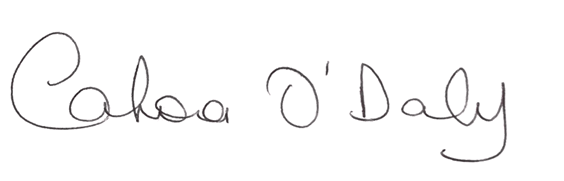 Cahoa O'Daly